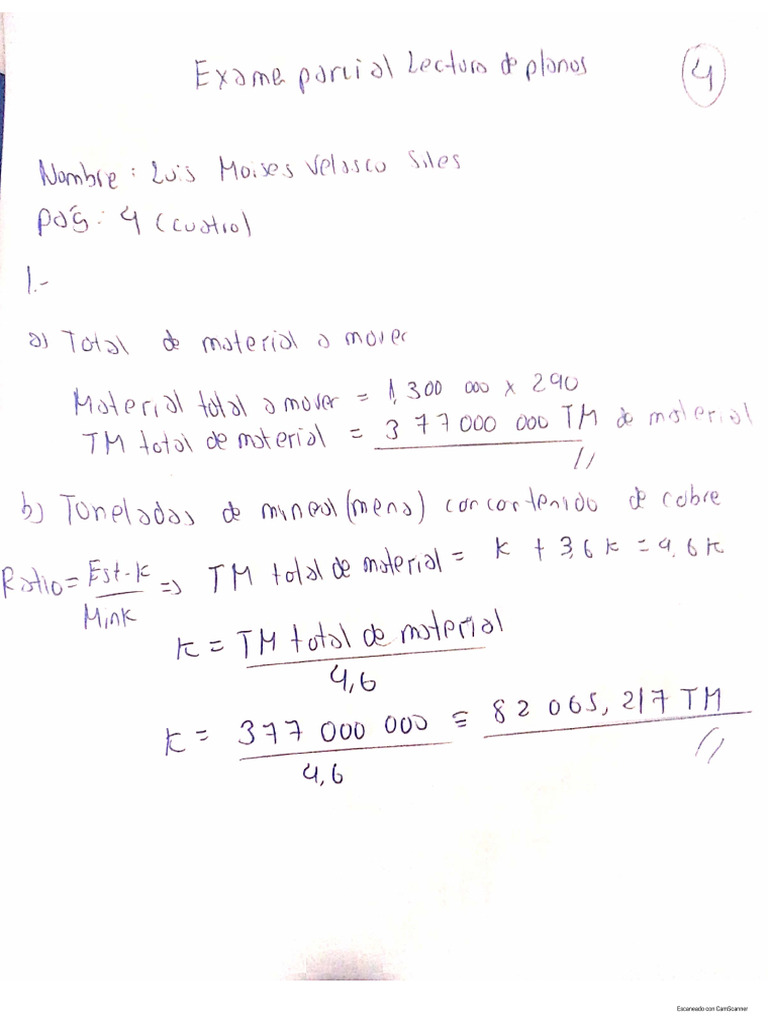 Exame parcial Lectura de planos
4
Nombre: Luis Moises Velasco Siles
pág: 4 (cuatro)
1.-
a) Total de material a mover
Material total a mover = 1,300 000 x 290
TM total de material = 377000 000 TM de material
b) Toneladas de mineal (mena) con contenido de cobre
Ratio = Est-k / Mink => TM total de material = k + 3,6 k = 4,6 k
k = TM total de material / 4,6
k = 377 000 000 / 4,6 = 82 065,217 TM
Escaneado con CamScanner